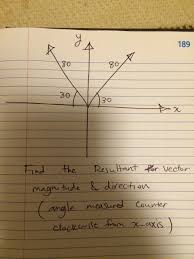 189
y
80 80
30 30
x
Find the Resultant for vector
magnitude & direction
(angle measured counter
clockwise from x-axis)